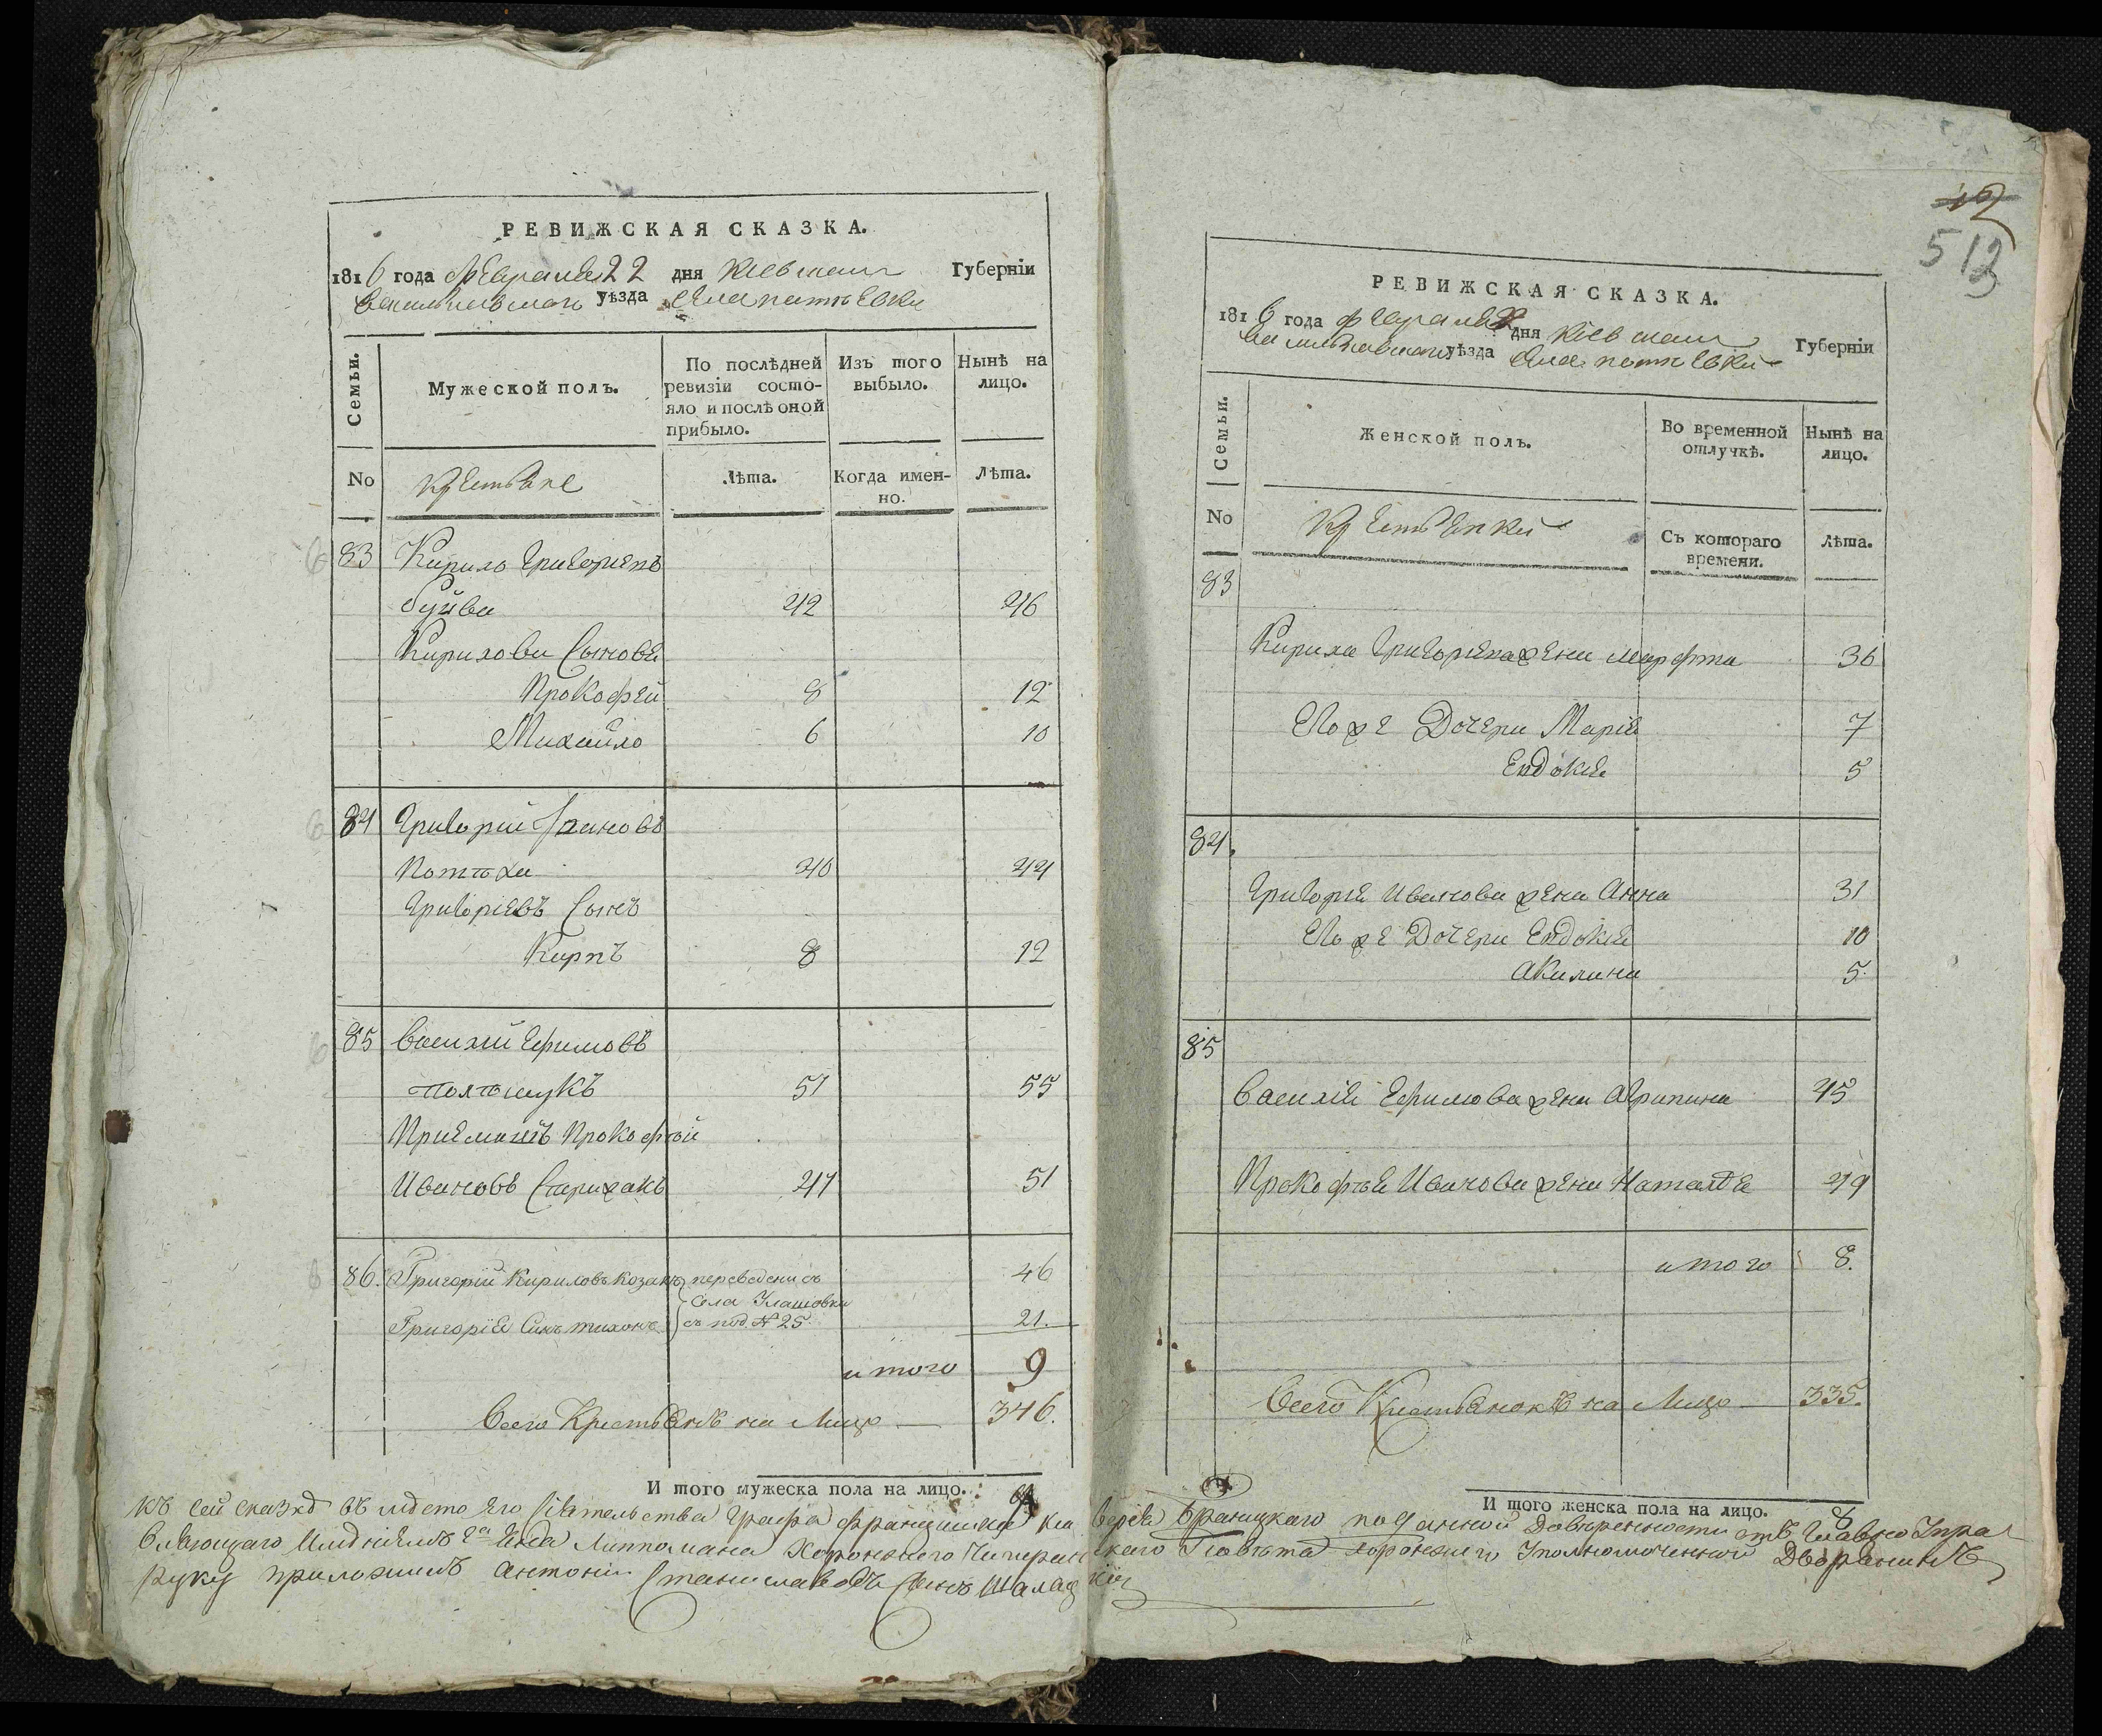 РЕВИЖСКАЯ СКАЗКА.
1816 года Февраля 22 дня Киевской Губерніи
Васильковскаго уѣзда села
Семьи.
Мужеской полъ.
По послѣдней ревизіи состо-
яло и послѣ оной
прибыло.
Изъ того
выбыло.
Нынѣ на
лицо.
No
Крестьяне
Лѣта.
Когда имен-
но.
Лѣта.
83 Кирило Григорієвъ
42 46
Кирилови Сынове
Прокофей 8 12
Михайло 6 10
84 Григорій Івановъ
Потѣха 40 44
Григорієвъ Сынъ
Карпъ 8 12
85 Василій Ефимовъ
Полѣщукъ 51 55
Приемышъ Прокофѣй
Ивановъ 47 51
86. Григорій Кириловъ Козакъ переведени съ 46
села
Григорія Сынъ Тихонъ съ под № 25. 21.
итого 9
Всего Крестьянъ на Лицо 346.
И того мужеска пола на лицо. 9
512
РЕВИЖСКАЯ СКАЗКА.
1816 года Февраля 22 дня Киевской Губерніи
Васильковскаго уѣзда села
Семьи.
Женской полъ.
Во временной
отлучкѣ.
Нынѣ на
лицо.
No
Крестьянки
Съ котораго
времени.
Лѣта.
83
Кирила Григорієва жена Марфта 36
Его же Дочери Марія 7
Евдокія 5
84.
Григорія Иванова жена Анна 31
Его же Дочери Евдокія 10
Акилина 5.
85
Василія Ефимова жена Агрипина 45
Прокофѣя Иванова жена Наталія 49
итого 8.
Всего Крестьянокъ на Лицо 335.
И того женска пола на лицо. 8
Къ сей сказкѣ въ мѣсто Его Сіятельства Графа Францишка Ксаверія Браницкаго по данной Довѣренности отъ Главно Упра-
вляющаго Имѣніемъ Его Липпомана Хоронжего Повѣта хоронжего Уполномоченной Дворянинъ
руку приложилъ Антоній Станиславовъ Сынъ